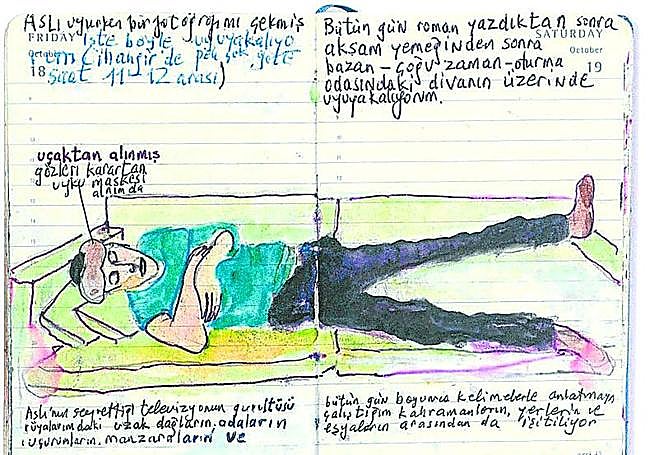 Aslı uyurken bir fotoğrafımı çekmiş
FRIDAY
October
18
işte böyle uyuyakalıyo
rum Cihangir'de pek çok gece
saat 11-12 arası)
Bütün gün roman yazdıktan sonra
SATURDAY
akşam yemeğinden sonra
October
19
bazan - çoğu zaman - oturma
odasındaki divanın üzerinde
uyuyakalıyorum.
uçaktan alınmış
gözleri karartan
uyku maskesi
alnımda
Aslı'nın seyrettiği televizyonun gürültüsü
rüyalarımdaki uzak dağların, odaların
uçurumların, manzaraların ve
bütün gün boyunca kelimelerle anlatmaya
çalıştığım kahramanların, yerlerin ve
eşyaların arasından da işitiliyor